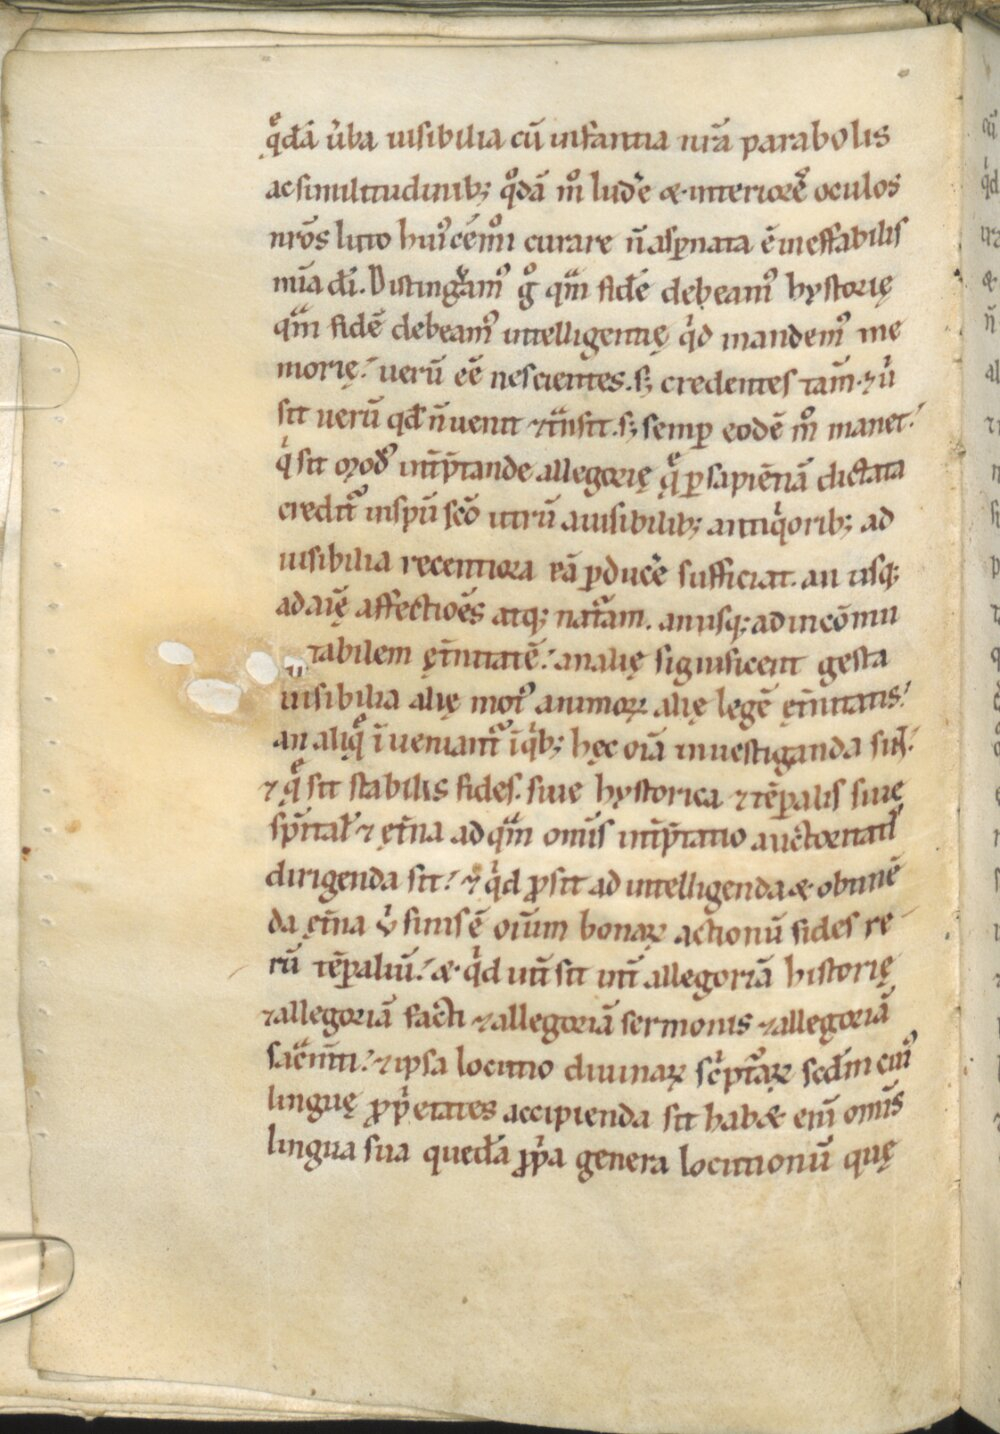 qͤdā ůba uisibilia cū infantia nr̄a parabolis
ac similitudinib; qͦdā mͦ ludͤe & interiorē oculos
nr̄os luto huꝰcēmͦi curare n̄ aspnata ē ineffabilis
mīa dī. Distinguamꝰ gͦ quā fidē debeamꝰ hystorię
quā fidē debeamꝰ intelligentię qͥd mandemꝰ me
morię / uerū eē nescientes. s; credentes tam̄. ⁊ ů
sit uerū qd̄ n̄ uenit ⁊ tͣnsit. s; semꝑ eodē mͦ manet /
qͥ sit modꝰ int̄p̄tande allegorię qͤ ꝑ sapientiā dictata
creditᷣ inspū scō utrū a uisibilib; antiqͥorib; ad
uisibilia recentiora eā ꝑducͤe sufficiat. an usq;
ad aīę affectiōes atq; natͣam. an usq; ad incōmu
tabilem ęt̄nitatē / an alię significent gesta
uisibilia alię motꝰ animoꝝ alię legē ęt̄nitatis /
an aliqͤ īueniantᷣ īqͥb; hęc oīa inuestiganda sūt /
⁊ qͤ sit stabilis fides. siue hystorica ⁊ tēꝑalis siue
sp̄ital̄ ⁊ ęt̄na ad quā om̄is int̄p̄tatio auctoritatꝭ
dirigenda sit / ⁊ qͥd ꝓsit ad intelligenda & obtinē
da ęt̄na ů̄ finis ē oīum bonaꝝ actionū fides re
rū tēꝑaliū / & qͥd int̄sit int̄ allegoriā historię
⁊ allegoriā facti ⁊ allegoriā sermonis ⁊ allegoriā
sacͣm̄ti / ⁊ ipsa locutio diuinaꝝ scͥpturaꝝ scd̄m cuiꝰ
linguę ꝓpͥetates accipienda sit hab& enī om̄is
lingua sua quedā ꝓpͥa genera locutionū quę